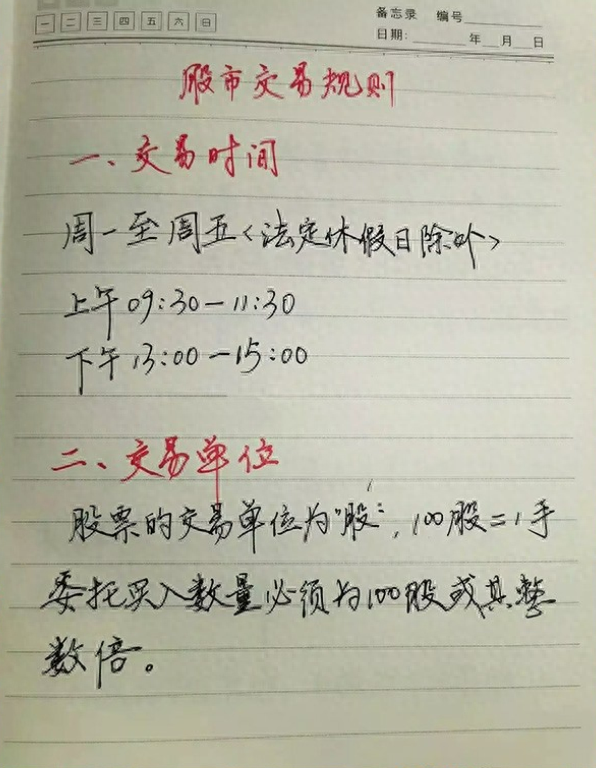 一 二 三 四 五 六 日
备忘录 编号
日期: 年 月 日
股市交易规则
一、交易时间
周一至周五<法定休假日除外>
上午09:30—11:30
下午13:00—15:00
二、交易单位
股票的交易单位为"股",100股=1手
委托买入数量必须为100股或其整
数倍。